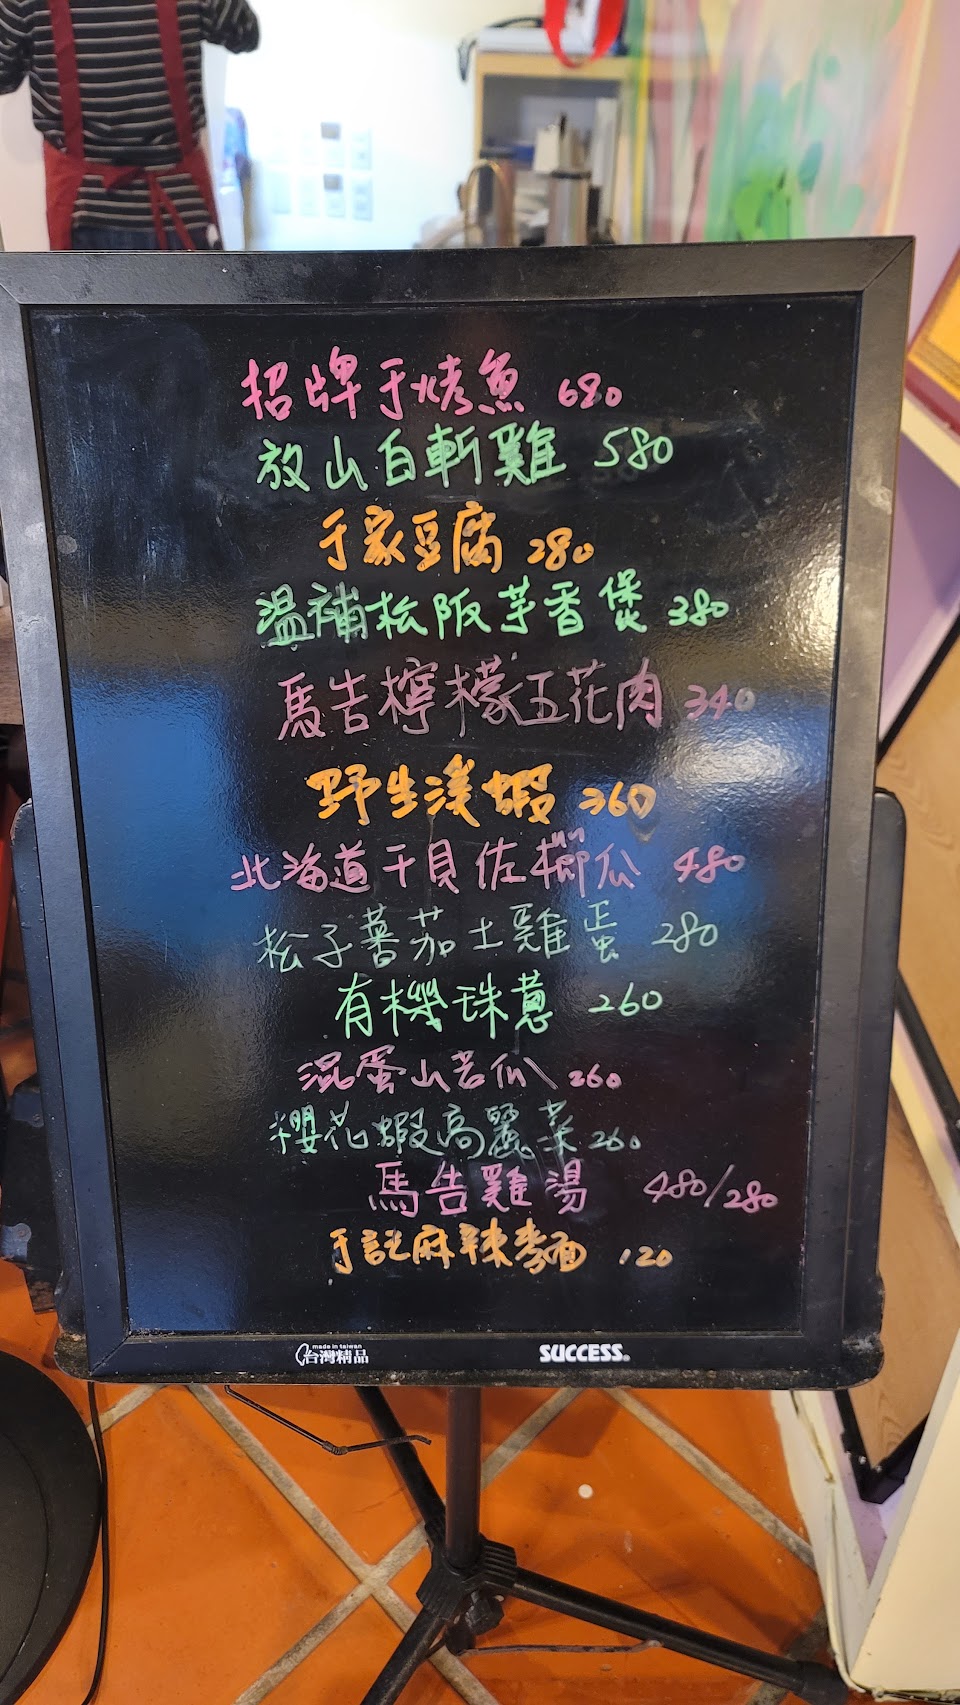 招牌于烤魚 680
放山白斬雞 580
于家豆腐 280
溫補松阪芋香煲 380
馬告檸檬五花肉 340
野生溪蝦 360
北海道干貝佐櫛瓜 480
松子蕃茄土雞蛋 280
有機珠蔥 260
混蛋山苦瓜 260
櫻花蝦高麗菜 260
馬告雞湯 480/280
于記麻辣麵 120
made in taiwan
台灣精品 SUCCESS®